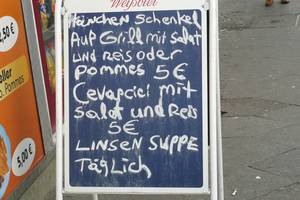 Weißbier
Hänchen Schenkel
Auf Grill mit salat
und Reis oder
Pommes 5€
Cevapciei mit
salat und Reis
5€
Linsen suppe
Täglich
2,50€
Pommes
5,00€